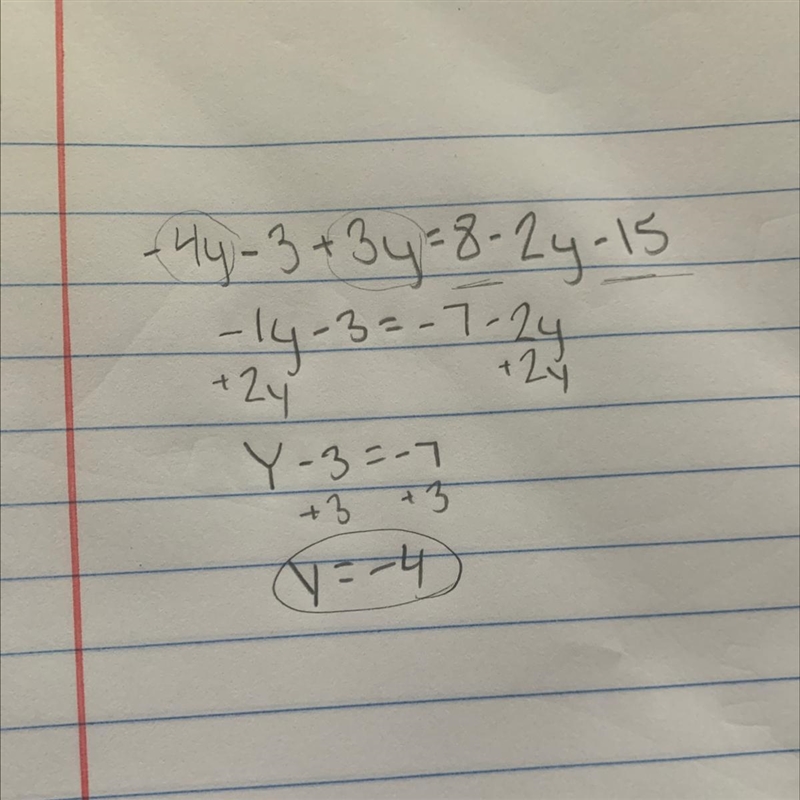 -4y-3+3y=8-2y-15
-1y-3=-7-2y
+2y +2y
Y-3=-7
+3 +3
y=-4